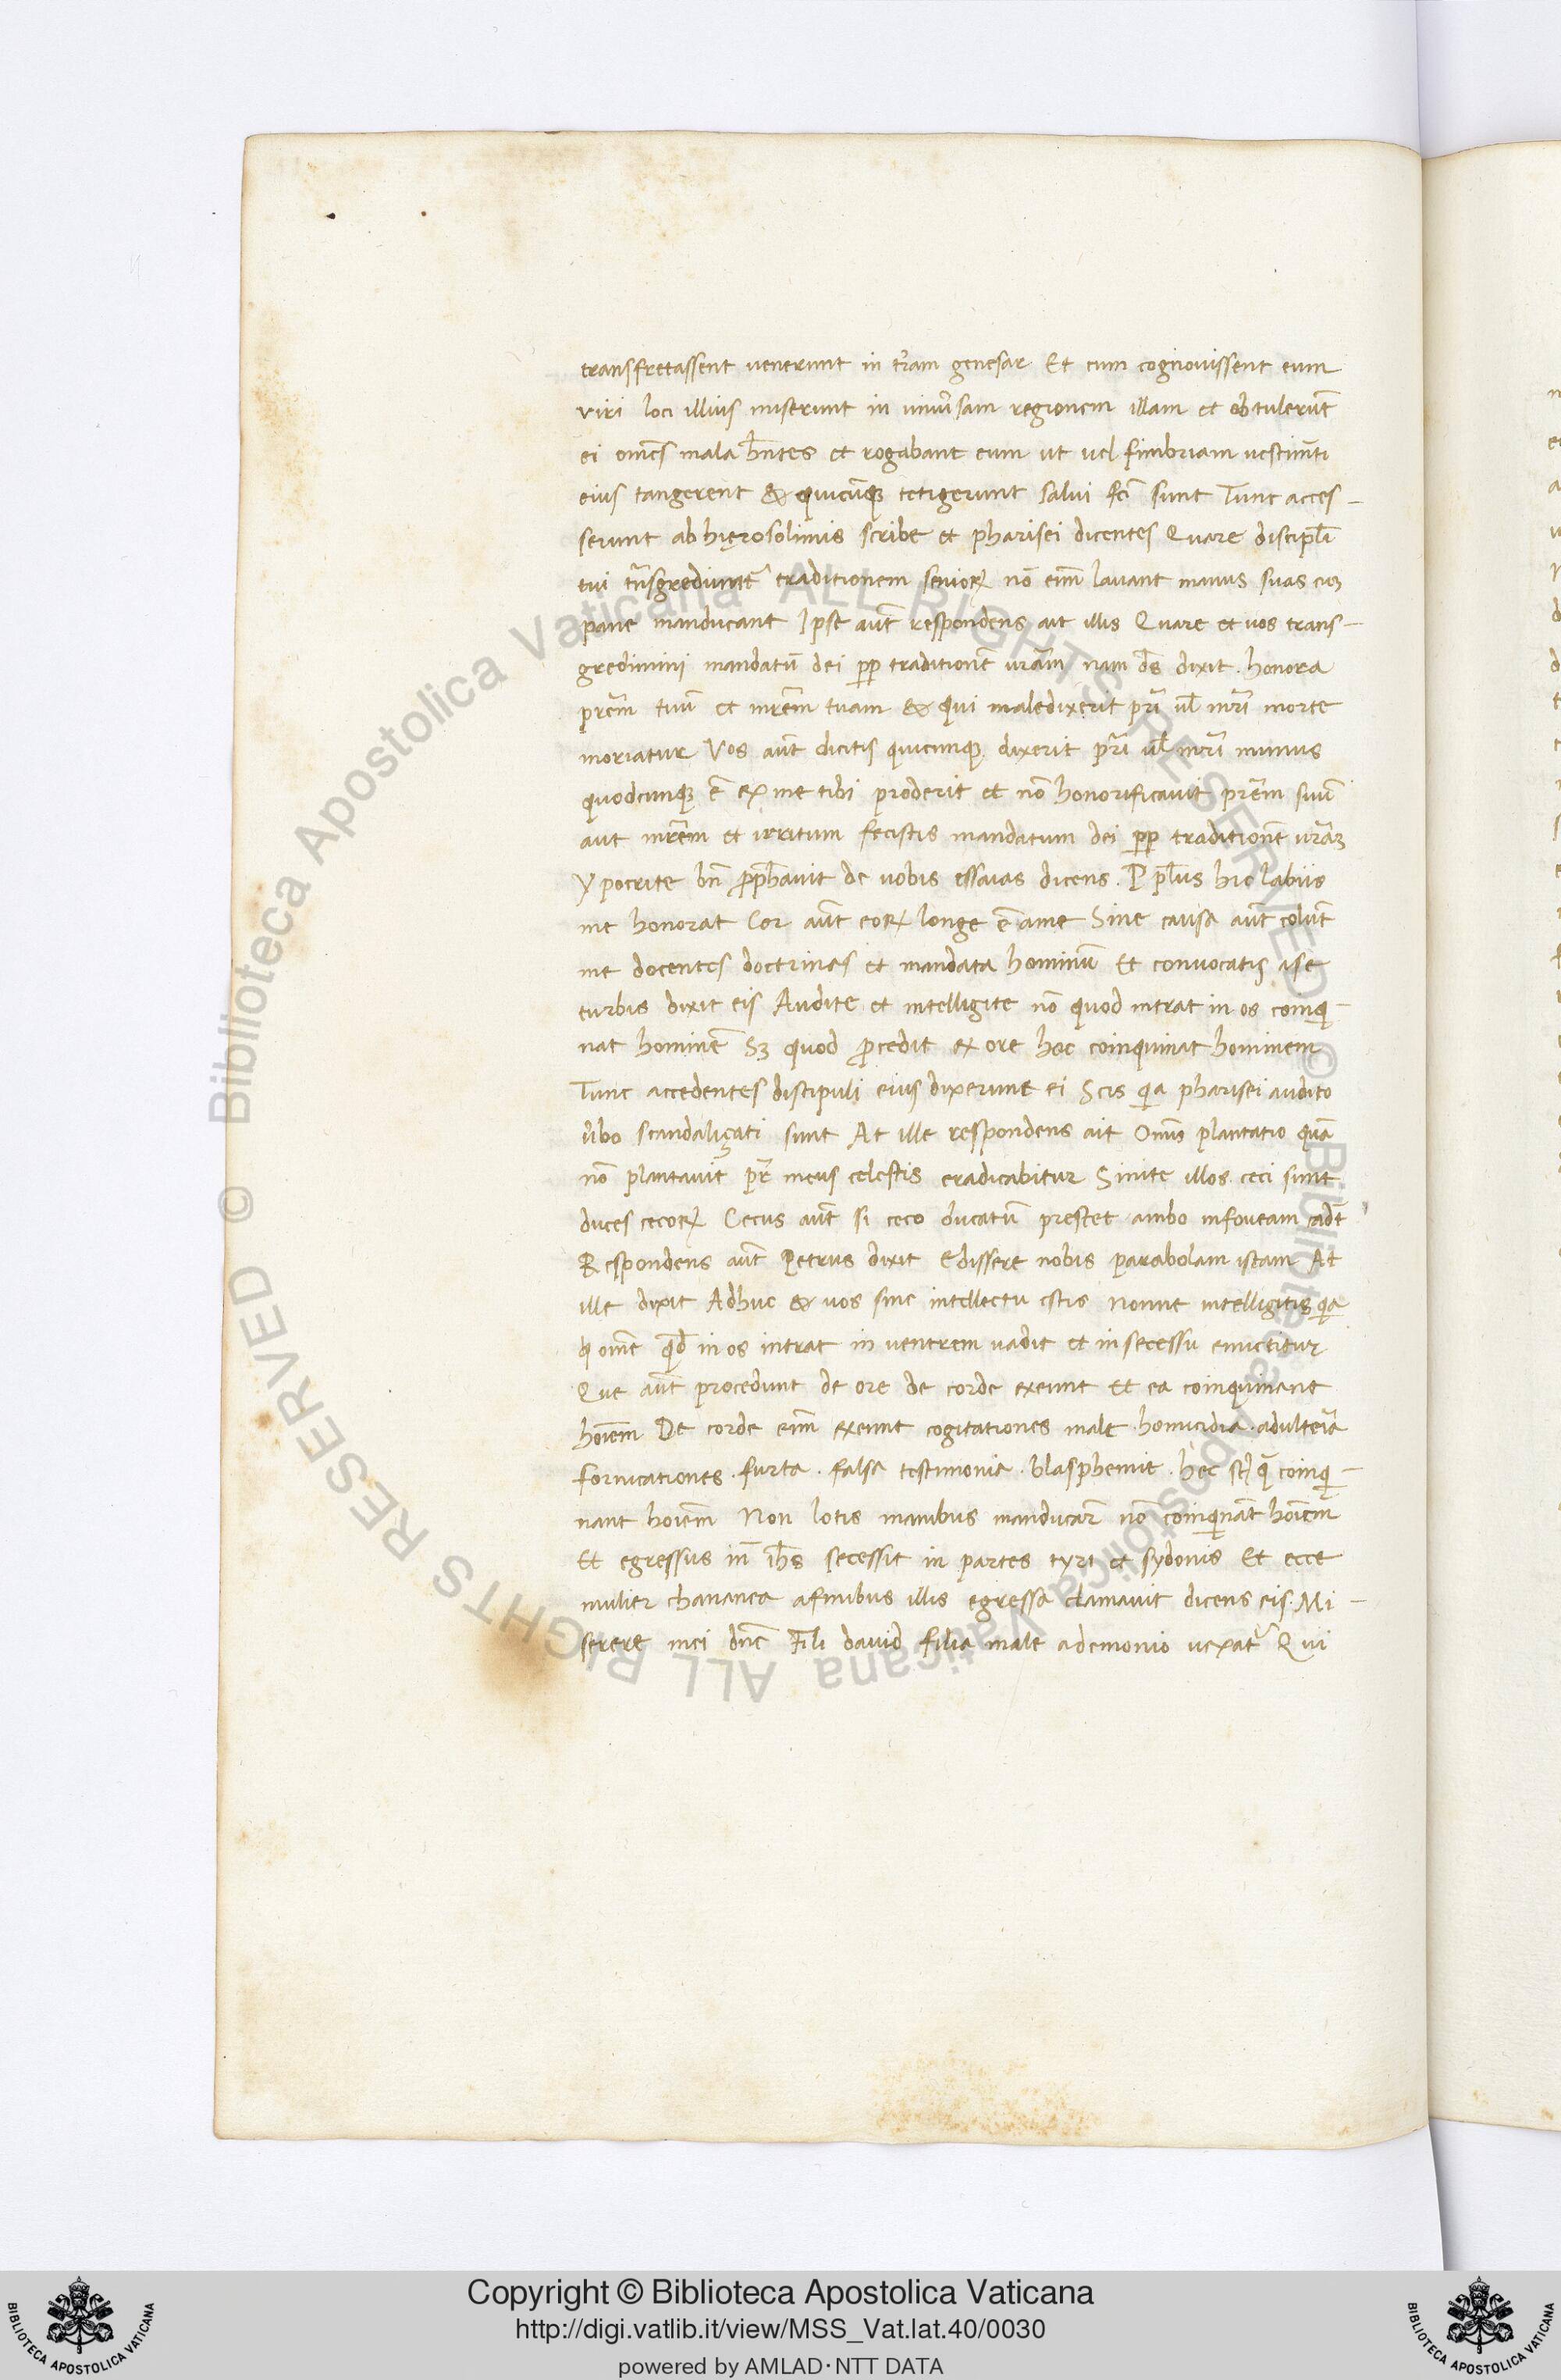 transfretassent uenerunt in tr̃am genesar Et cum cognouissent eum
viri loci illius miserunt in uniũsam regionem illam et obtulerũt
ei om̃es mala hñtes et rogabant eum ut uel fimbriam uestim̃ti
eius tangerent & quicũq; tetigerunt salui fc̃i sunt Tunc acces-
serunt ab hięrosolimis scribe et pharisei dicentes Quare discipl̃i
tui trñsgrediuntr̃ traditionem senioꝝ nõ eim̃ lavant manus suas cuꝫ
pane manducant Ipse aut̃ respondens ait illis Quare et uos trans-
gredimini mandatũ dei pp̃ traditionẽ ur̃am nam ds̃ dixit. honora
pr̃em tuũ et mr̃em tuam & qui maledixerit pr̃i ul̃ mr̃i morte
moriatur Vos aut̃ dicitis quicunq; dixerit pr̃i ul̃ mr̃i munus
quodcunq; ẽ ex me tibi proderit et nõ honorificauit pr̃em suũ
aut mr̃em et irritum fecistis mandatum dei pp̃ traditionẽ ur̃aꝫ
Ypocrite bñ ꝓph̃auit de uobis essaias dicens. Ppl̃us hic labiis
me honorat Cor aut̃ eoꝝ longe ẽ ame Sine causa aut̃ colũt
me docentes doctrinas et mandata hominũ Et conuocatis ase
turbis dixit eis Audite et intelligite nõ quod intrat in os coinq̃-
nat hominẽ Sꝫ quod ꝓcedit ex ore hoc coinquinat hominem
Tunc accedentes discipuli eius dixerunt ei Scis q̃a pharisei audito
ũbo scandaliçati sunt At ille respondens ait Om̃is plantatio quã
nõ plantauit pr̃ meus celestis eradicabitur Sinite illos ceci sunt
duces cecoꝝ Cecus aut̃ si ceco ducatũ prestet ambo infoueam cadt̃
Respondens aut̃ Petrus dixit Edissere nobis parabolam istam At
ille dixit Adhuc & uos sine intellectu estis Nonne intelligitis q̃a
om̃e qd̃ in os intrat in uentrem uadit et in secessu emictitur
Que aut̃ procedunt de ore de corde exeunt Et ea coinquinant
hoiem̃ De corde eim̃ exeunt cogitationes male. homicidia. adulteria
fornicationes. furta. falsa testimonia. blasphemie. hec st̃ q̃ coinq̃-
nant hoiem̃ Non lotis manibus manducar̃ nõ coinq̃nat hoiem̃
Et egressus in̄ ih̃s secessit in partes tyri et sydonis Et ecce
mulier chananea afinibus illis egressa clamauit dicens eis. Mi-
serere mei dñe Fili dauid filia male ademonio uexatr̃ Qui
Copyright © Biblioteca Apostolica Vaticana
http://digi.vatlib.it/view/MSS_Vat.lat.40/0030
powered by AMLAD·NTT DATA
BIBLIOTECA APOSTOLICA VATICANA
BIBLIOTECA APOSTOLICA VATICANA
© Biblioteca Apostolica Vaticana ALL RIGHTS RESERVED © Biblioteca Apostolica Vaticana ALL RIGHTS RESERVED